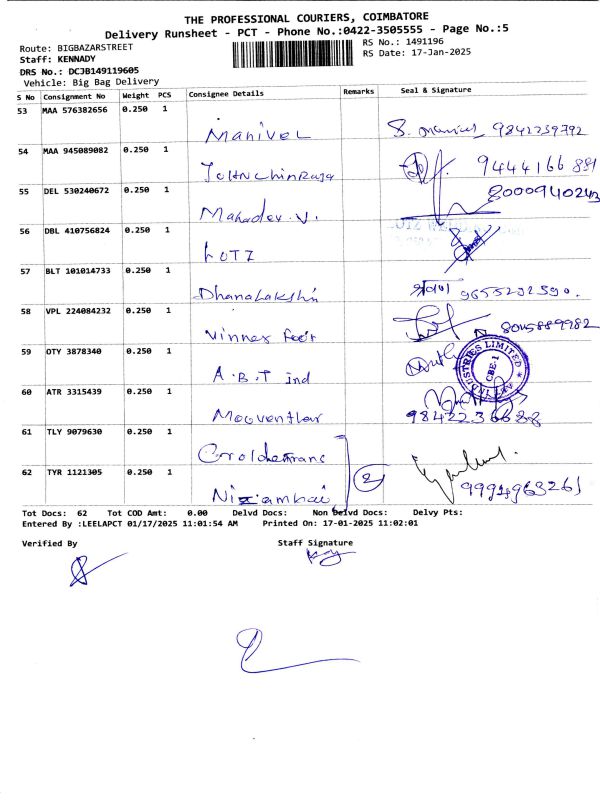 THE PROFESSIONAL COURIERS, COIMBATORE
Delivery Runsheet - PCT - Phone No.:0422-3505555 - Page No.:5
Route: BIGBAZARSTREET
RS No.: 1491196
Staff: KENNADY
RS Date: 17-Jan-2025
DRS No.: DCJB149119605
Vehicle: Big Bag Delivery
S No Consignment No Weight PCS Consignee Details Remarks Seal & Signature
53 MAA 576382656 0.250 1
Manivel S. 9842739792
54 MAA 945089082 0.250 1
9444166891
55 DEL 530240672 0.250 1
8000940243
Mahadev.V.
56 DBL 410756824 0.250 1
LOTZ
57 BLT 101014733 0.250 1
9655292590.
58 VPL 224084232 0.250 1
8015889982
59 OTY 3878340 0.250 1
INDUSTRIES LIMITED
CBE-1
A.B.T ind
60 ATR 3315439 0.250 1
9842236688
61 TLY 9079630 0.250 1
2
62 TYR 1121305 0.250 1
9994963261
Tot Docs: 62 Tot COD Amt: 0.00 Delvd Docs: Non Delvd Docs: Delvy Pts:
Entered By :LEELAPCT 01/17/2025 11:01:54 AM Printed On: 17-01-2025 11:02:01
Verified By Staff Signature